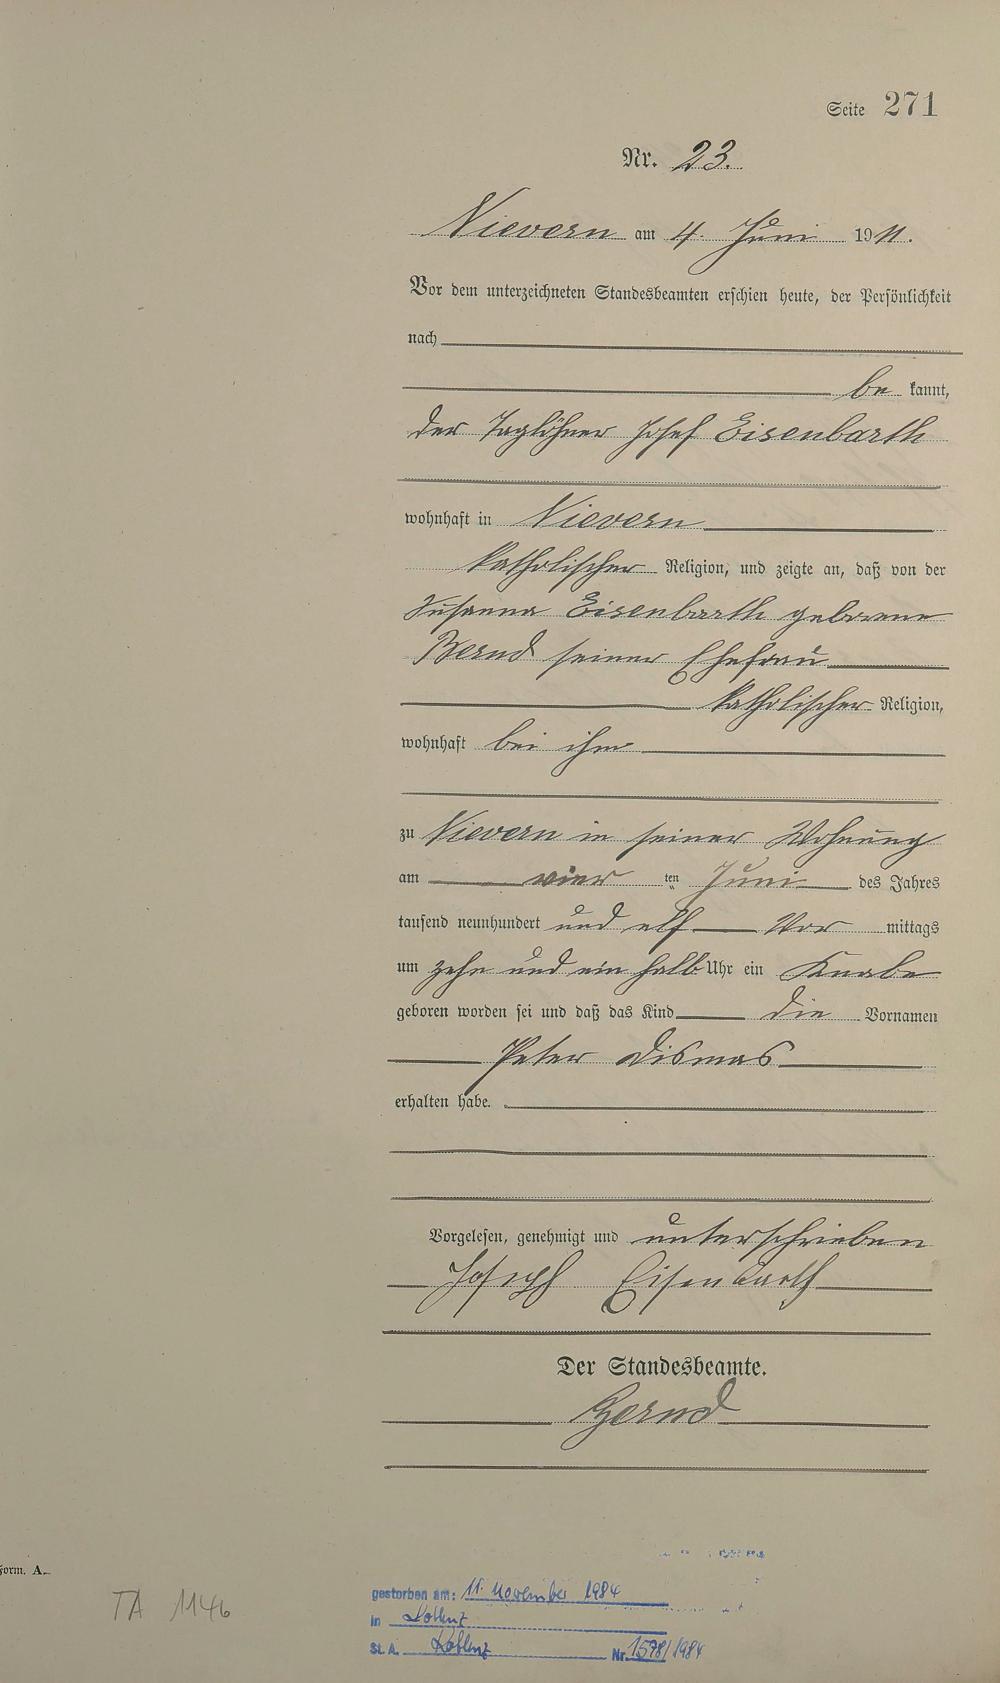 Seite 271
Nr. 23.
Nievern am 4. Juni 1911.
Vor dem unterzeichneten Standesbeamten erschien heute, der Persönlichkeit
nach
be kannt,
der Taglöhner Josef Eisenbarth
wohnhaft in Nievern
katholischer Religion, und zeigte an, daß von der
Susanna Eisenbarth geborene
Bernd seiner Ehefrau
katholischer Religion,
wohnhaft bei ihm
zu Nievern in seiner Wohnung
am vier ten Juni des Jahres
tausend neunhundert und elf Vor mittags
um zehn und ein halb Uhr ein Knabe
geboren worden sei und daß das Kind die Vornamen
Peter Dismas
erhalten habe.
Vorgelesen, genehmigt und unterschrieben
Joseph Eisenbarth
Der Standesbeamte.
Form. A.
TA 1146
gestorben am: 11. November 1984
in Koblenz
St. A. Koblenz Nr. 1598/1984